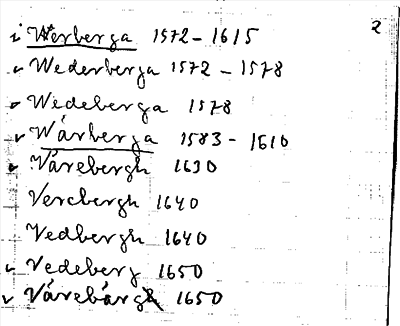 2
Werberga 1572-1615
Wederberga 1572-1578
Wedeberga 1578
Wårberga 1583-1610
Vårebergh 1630
Verebergh 1640
Vedbergh 1640
Vedeberg 1650
Vårebårg 1650